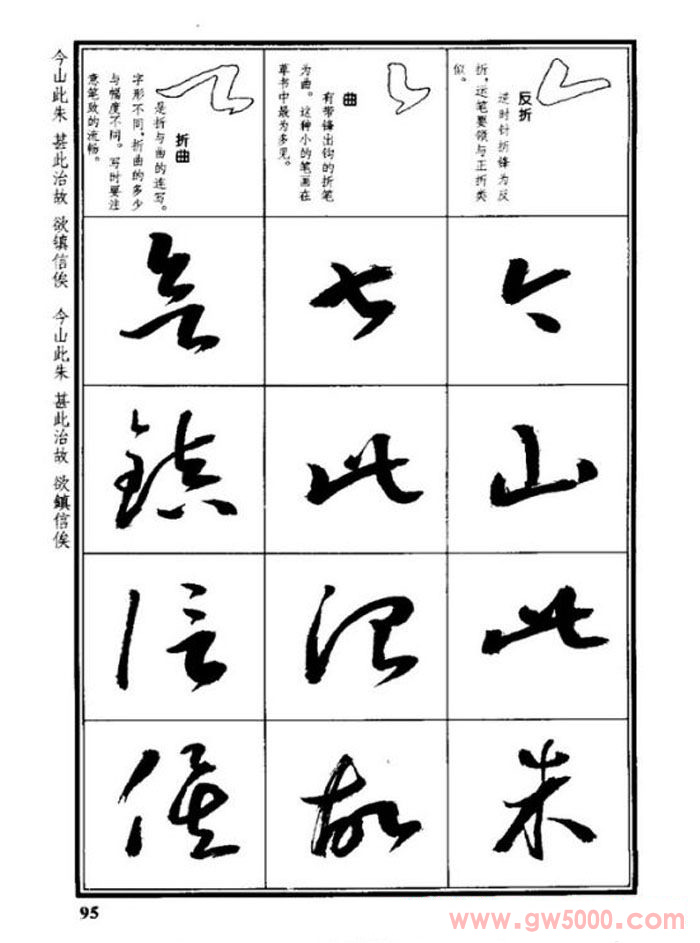 反折
逆时针折锋为反
折,运笔要领与正折类
似。
今
山
此
朱
曲
有带锋出钩的折笔
为曲。这种小的笔画在
草书中最为多见。
甚
此
治
故
折曲
是折与曲的连写。
字形不同,折曲的多少
与幅度不同。写时要注
意笔致的流畅。
欲
鎮
信
俟
今山此朱 甚此治故 欲镇信俟 今山此朱 甚此治故 欲鎮信俟
95
www.gw5000.com